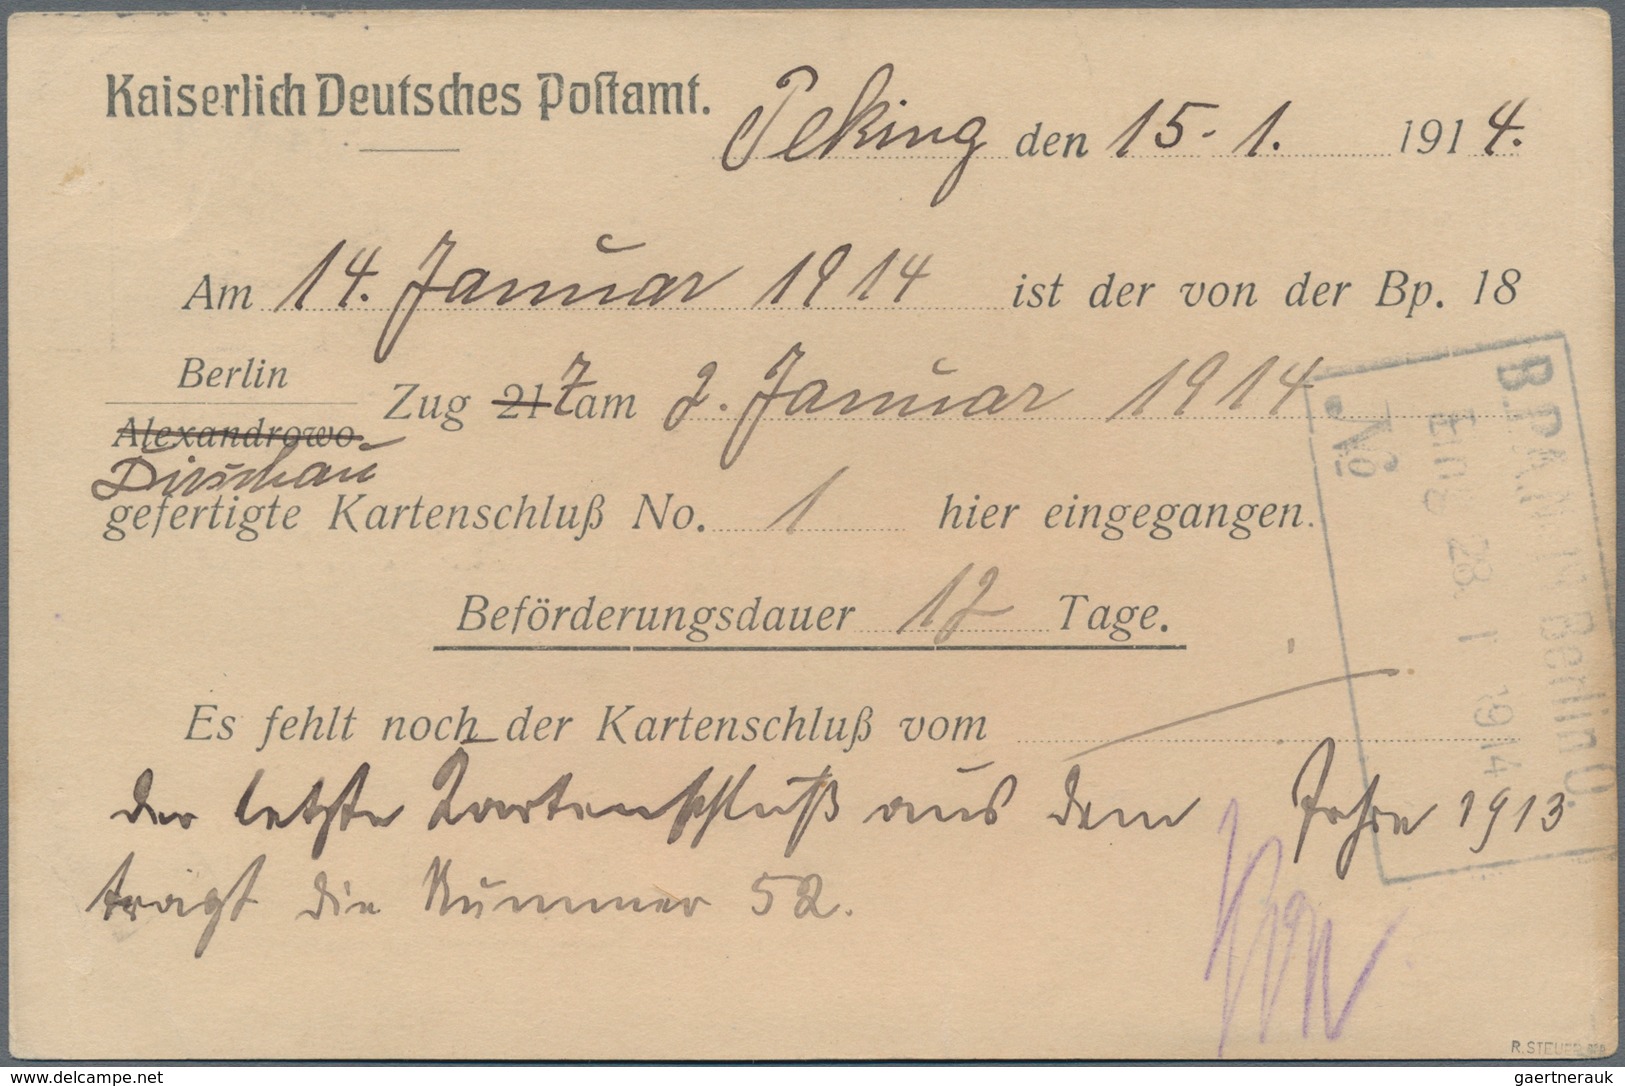 Kaiserlich Deutsches Postamt.
Peking den 15. 1. 1914.
Am 14. Januar 1914 ist der von der Bp. 18
Berlin
Alexandrowo
Dirschau
Zug 21 7 am 2. Januar 1914
gefertigte Kartenschluß No. 1 hier eingegangen.
Beförderungsdauer 12 Tage.
Es fehlt noch der Kartenschluß vom
der letzte Kartenschluß aus dem Jahre 1913
trägt die Nummer 52.
B.P.A. Berlin O.
Eing 28. 1 1914
No
R. STEUER
delcampe.net
gaertnerauk